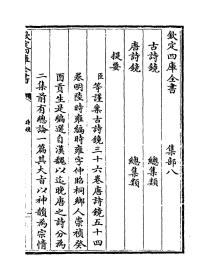 欽定四庫全書
集部八
古詩鏡
總集類
唐詩鏡
總集類
提要
臣等謹案古詩鏡三十六卷唐詩鏡五十四
卷明陸時雍編時雍字仲昭桐鄉人崇禎癸
酉貢生是編選自漢魏以迄晚唐之詩分為
二集前有總論一篇其大旨以神韻為宗情
欽定四庫全書
詩鏡